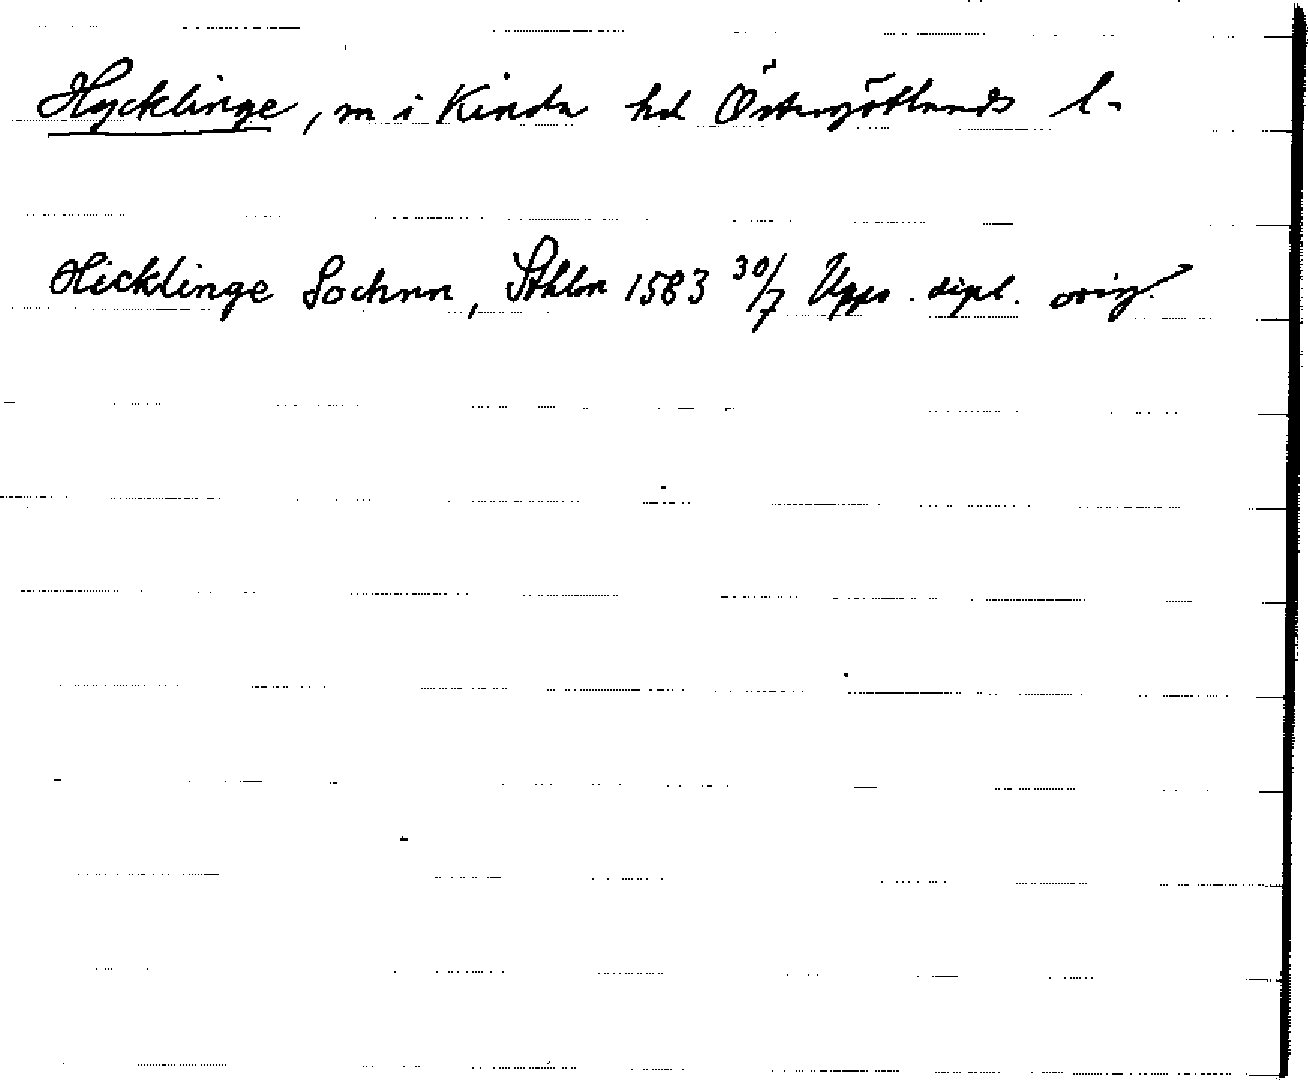 Hycklinge, sn i Kinda hd Östergötlands l.
Hicklinge Sochnn, Sthlm 1583 30/7 Upps. dipl. orig.